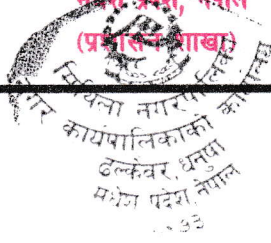 मधेश प्रदेश, नेपाल
(प्रशासन शाखा)
मिथिला नगरपालिका
नगर कार्यपालिकाको कार्यालय
ढल्केवर, धनुषा
मधेश प्रदेश, नेपाल